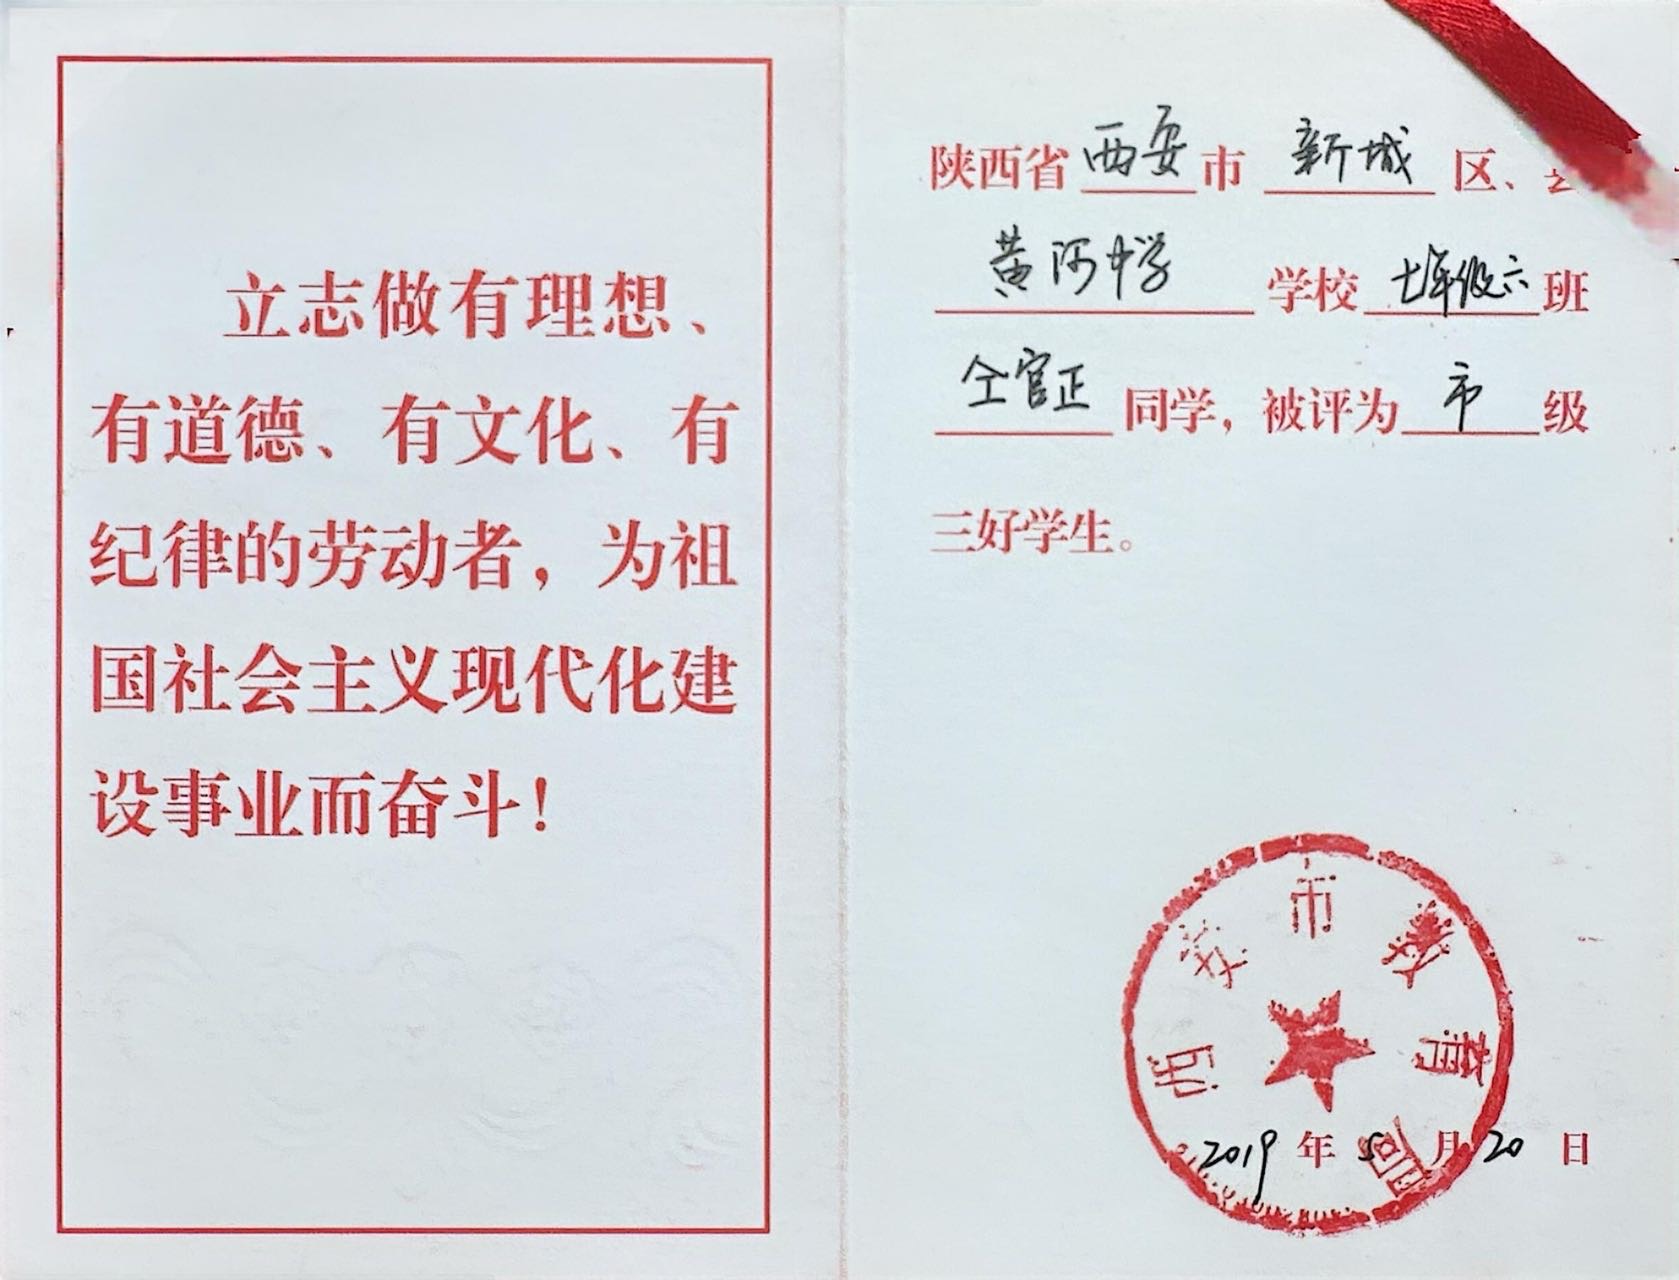 立志做有理想、
有道德、有文化、有
纪律的劳动者，为祖
国社会主义现代化建
设事业而奋斗！
陕西省西安市新城区、
黄河中学学校七年级六班
仝官正同学，被评为市级
三好学生。
西安市教育局
2019年5月20日